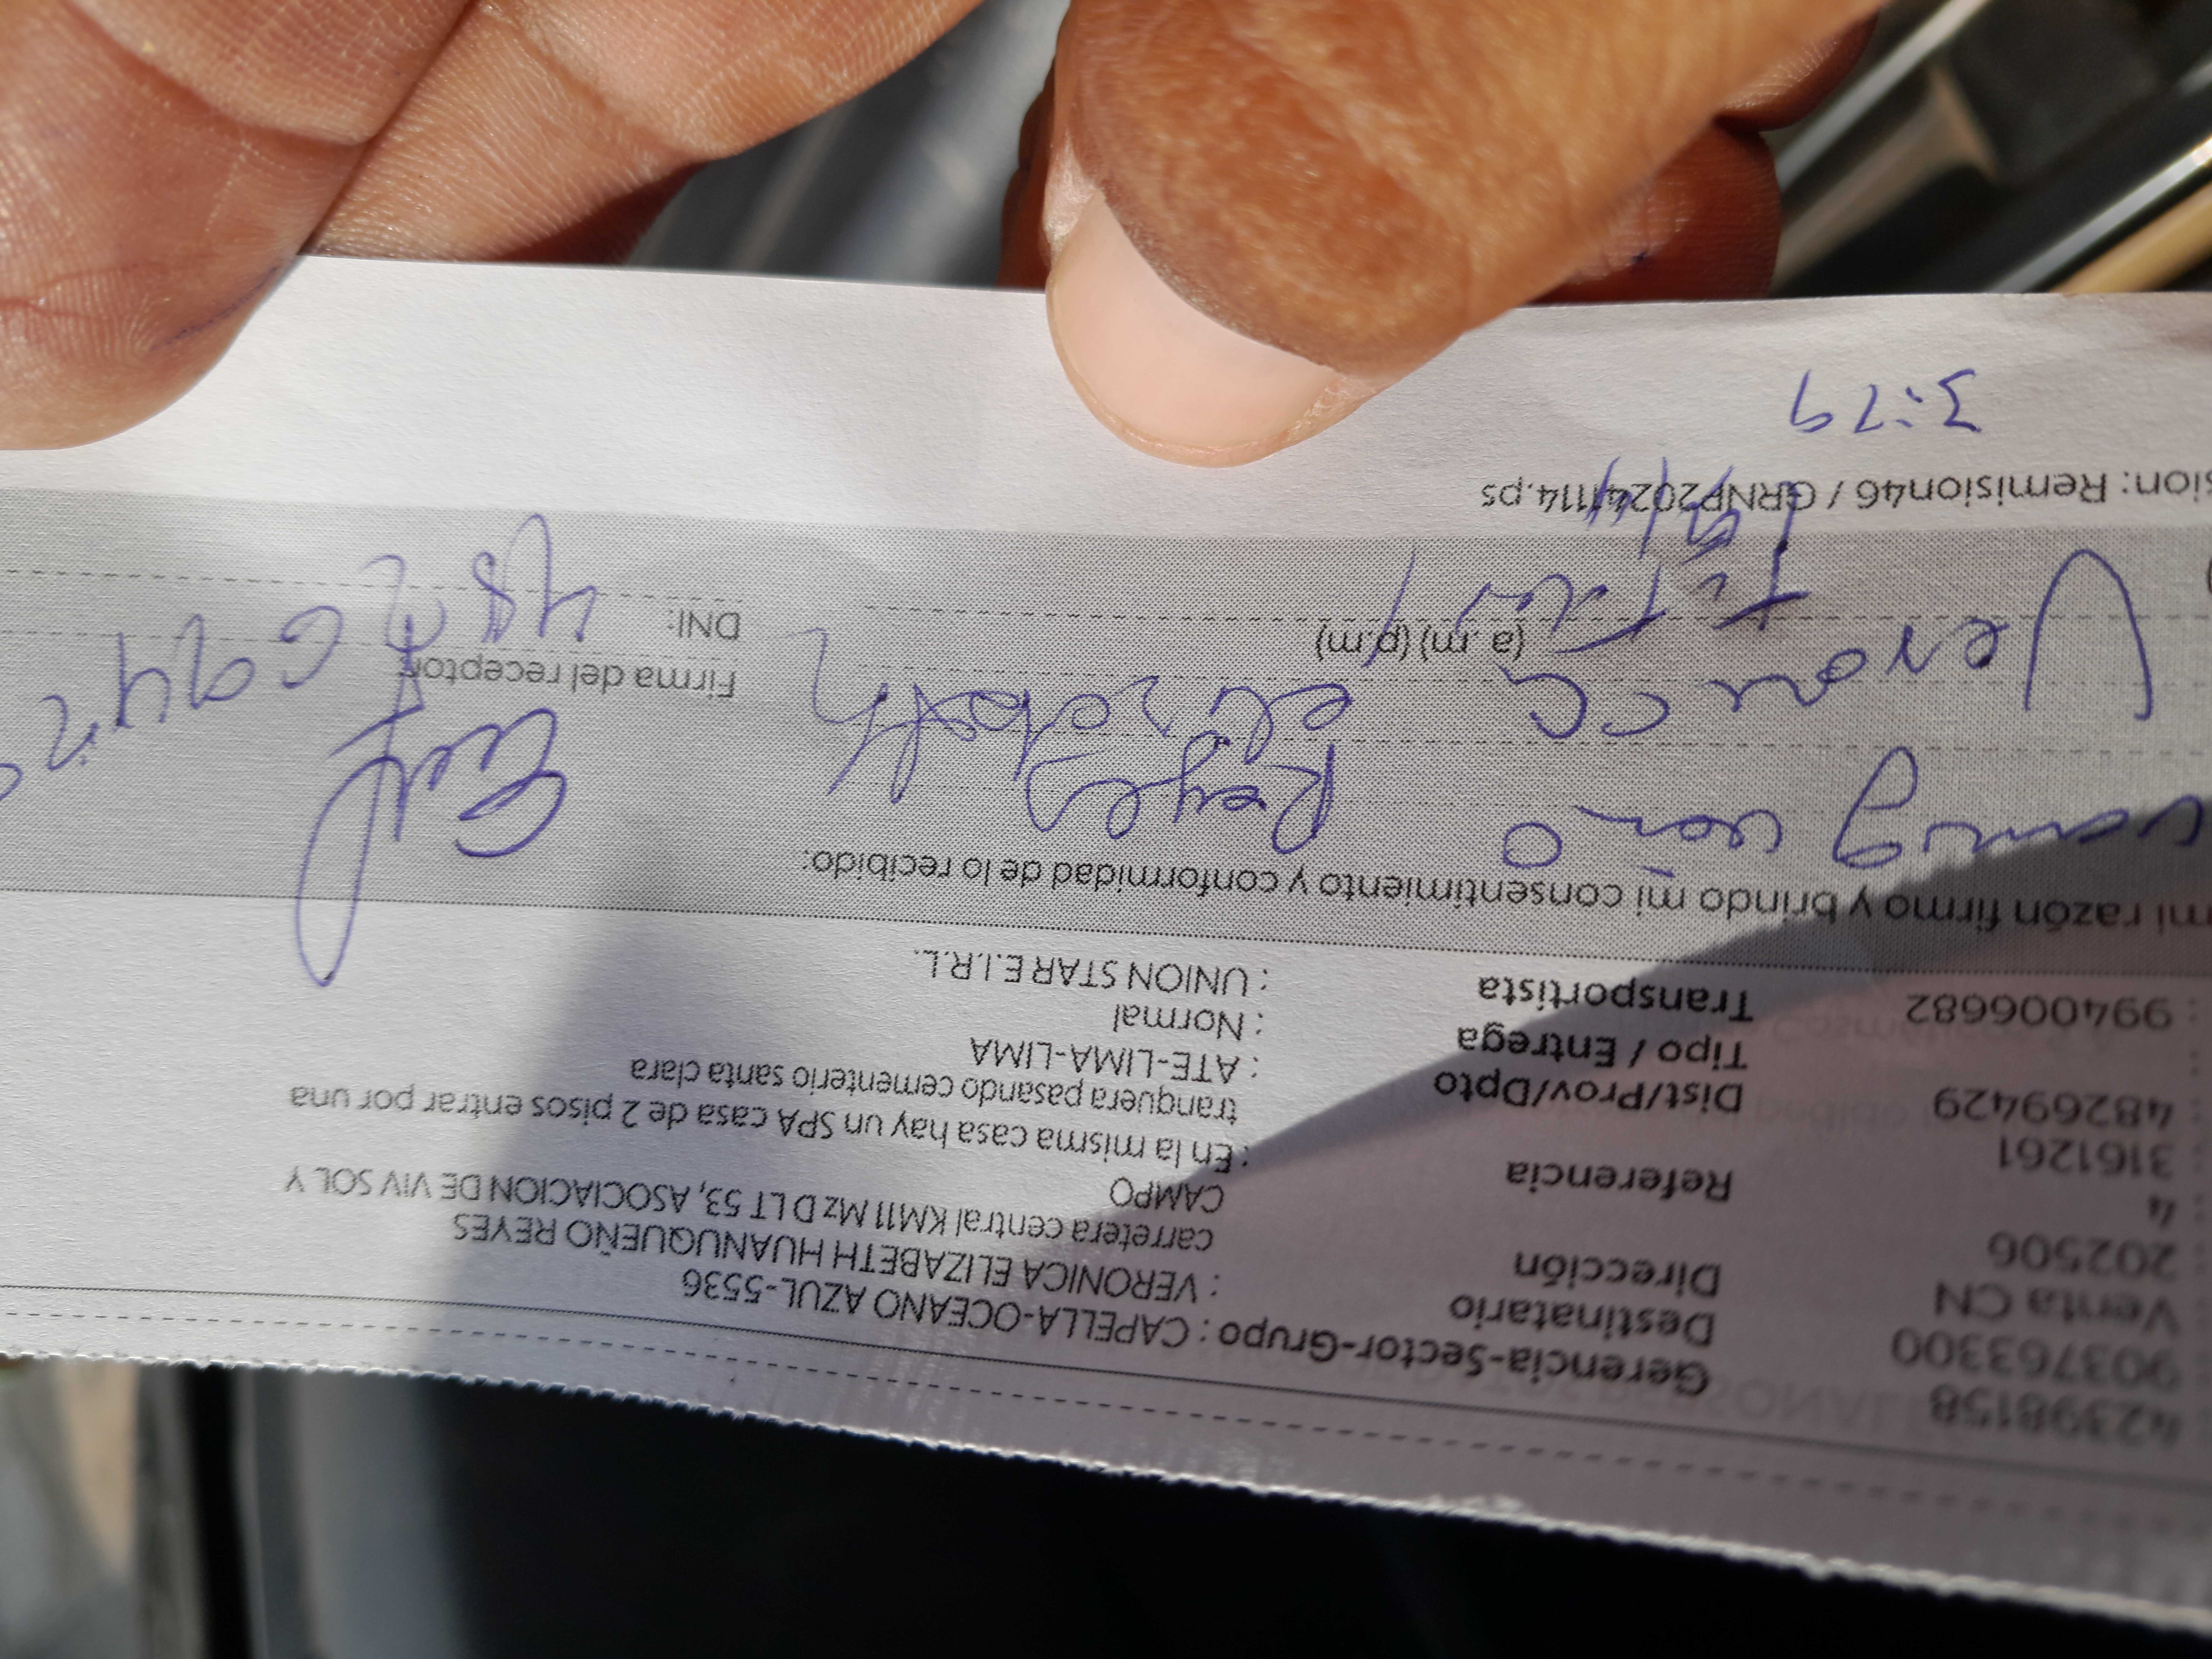 42398158
903763300
Venta CN
202506
4
3161261
48269429
:
: 994006682
Gerencia-Sector-Grupo : CAPELLA-OCEANO AZUL-5536
Destinatario : VERONICA ELIZABETH HUANUQUEÑO REYES
Dirección carretera central KM11 Mz D LT 53, ASOCIACION DE VIV SOL Y
CAMPO
Referencia : En la misma casa hay un SPA casa de 2 pisos entrar por una
tranquera pasando cementerio santa clara
Dist/Prov/Dpto : ATE-LIMA-LIMA
Tipo / Entrega : Normal
Transportista : UNION STAR E.I.R.L.
mi razón firmo y brindo mi consentimiento y conformidad de lo recibido:
Reyes
Veronica elizabeth
Firma del receptor
(a.m) (p.m)
DNI:
Titular
sion: Remision46 / GRNP20241114.ps